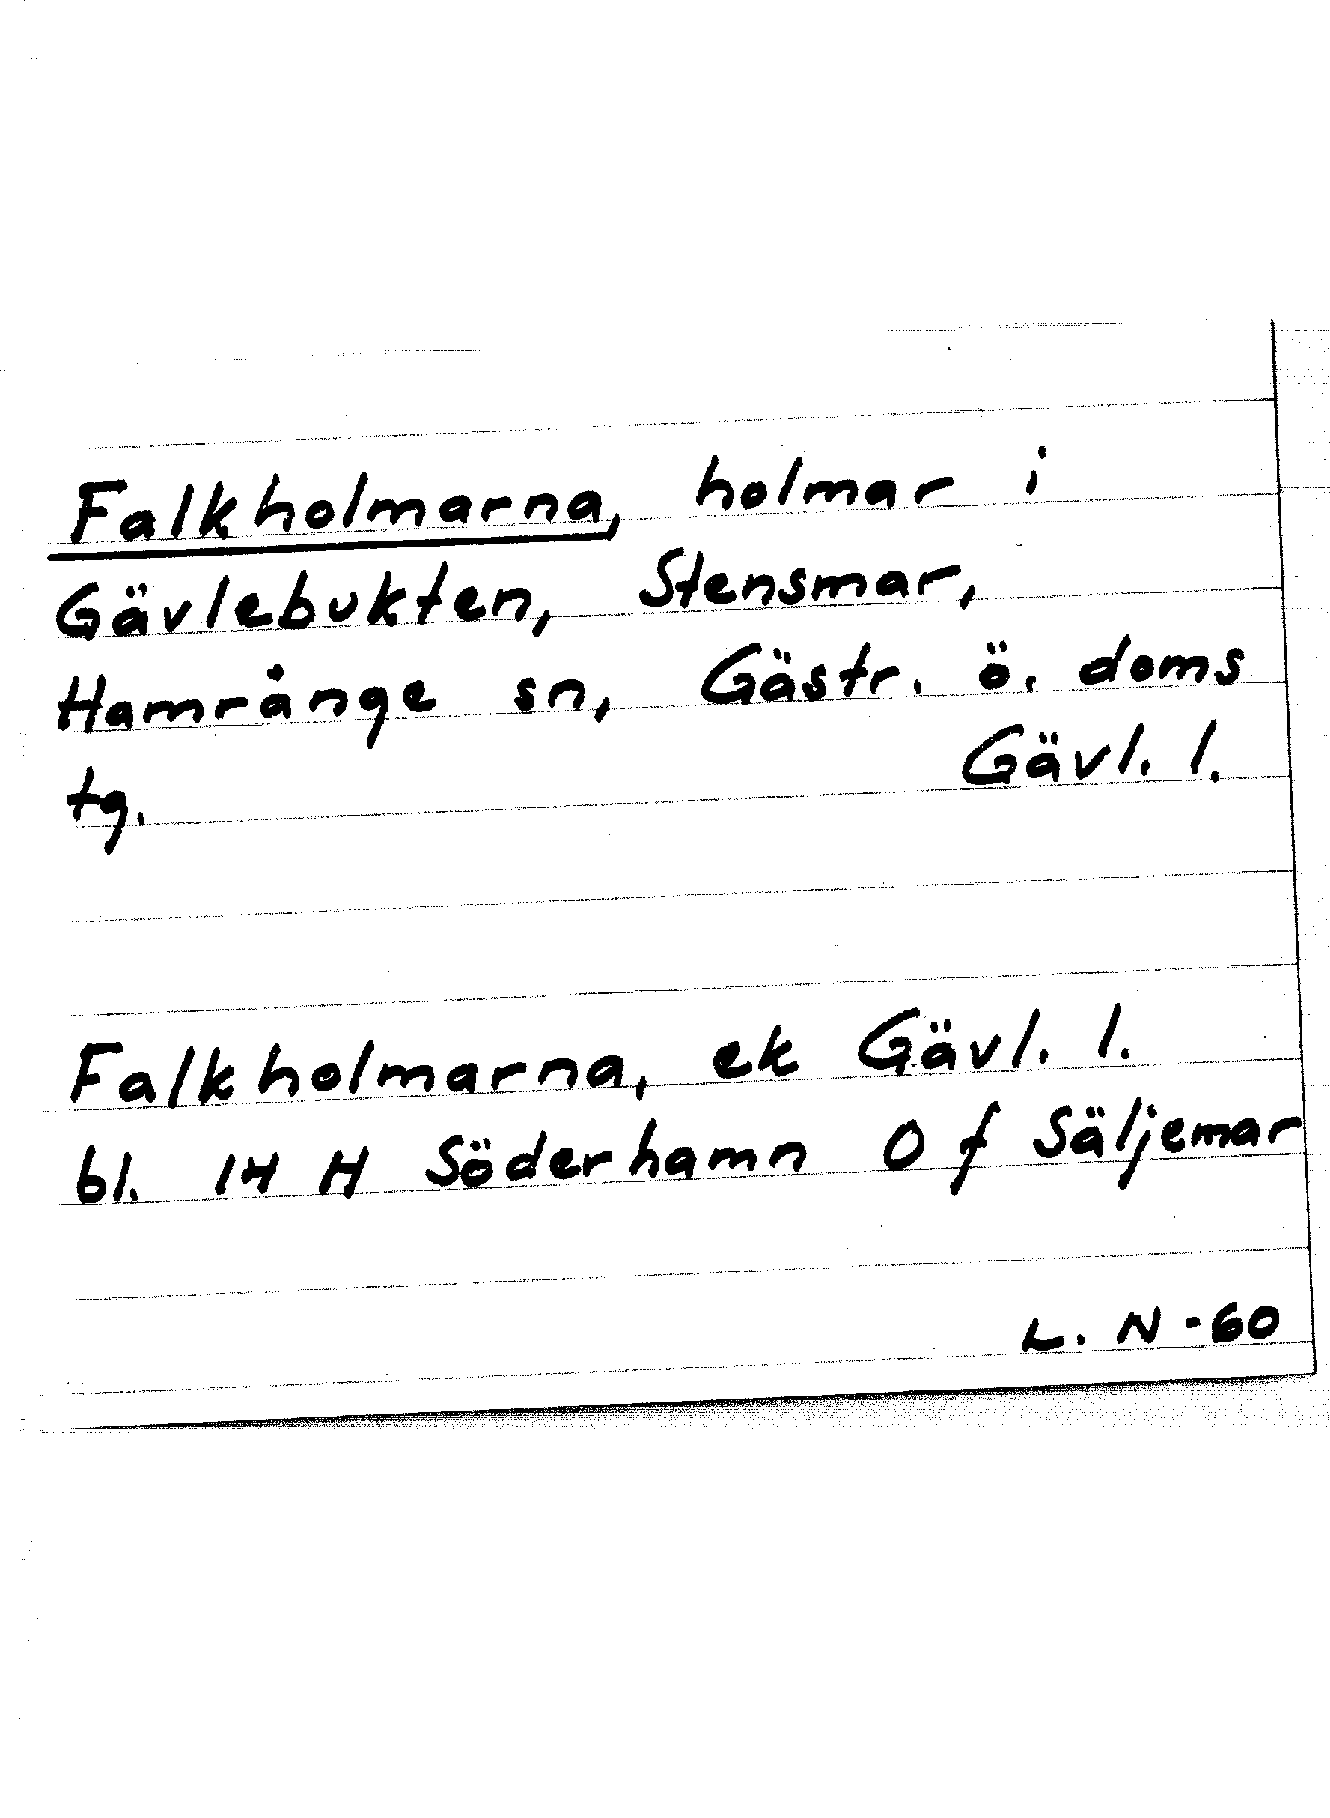 Falkholmarna, holmar i
Gävlebukten, Stensmar,
Hamrånge sn, Gästr. ö. doms
tg. Gävl. l.
Falkholmarna, ek Gävl. l.
bl. 14 H Söderhamn O f Säljemar
L. N -60